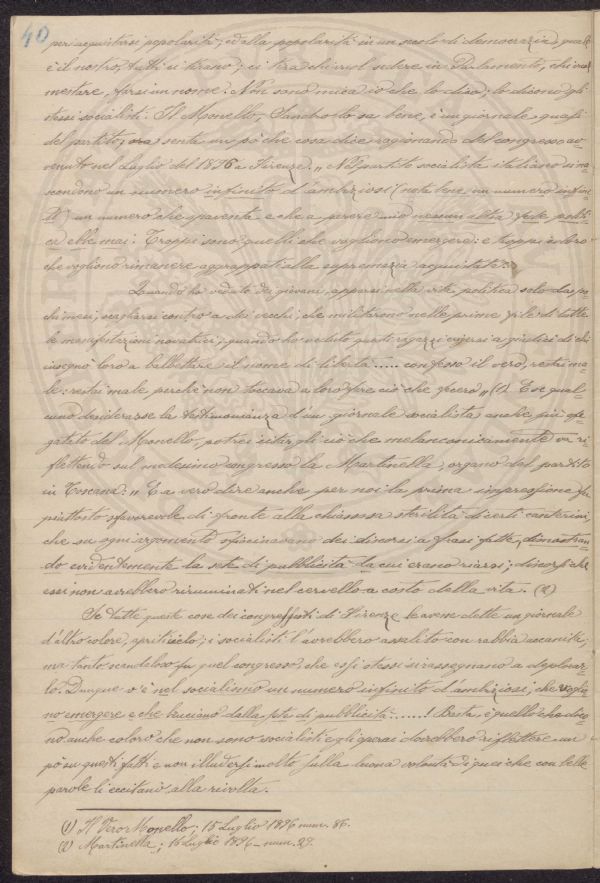 40
per acquistarsi popolarità; ed alla popolarità in un secolo di democrazia, qual
è il nostro, tutti ci tirano; ci tira chi vuol sedere in Parlamento, chi vuol
mestare, farsi un nome. Non sono mica io che lo dico; lo dicono gli
stessi socialisti. Il Monello, Sandro lo sa bene, è un giornale quasi
del partito; ora senta un pò che cosa dice ragionando del congresso av-
venuto nel Luglio del 1896 a Firenze: „ Nel partito socialista italiano si na-
scondono un numero infinito d'ambiziosi (nota bene, un numero infini-
to) un numero che spaventa e che a parere mio nessun altra fede politi-
ca ebbe mai. Troppi sono quelli che vogliono emergere: e troppi coloro
che vogliono rimanere aggrappati alla supremazia acquistata.
Quando ho veduto dei giovani, apparsi nella vita politica solo da po-
chi mesi, scagliarsi contro a dei vecchi, che militarono nelle prime file di tutte
le manifestazioni novatrici, quando ho veduto questi ragazzi ergersi a giudici di chi
insegnò loro a balbettare il nome di libertà ..... confesso il vero, restai ma-
le: restai male perchè non toccava a loro fare ciò che fecero „ (1) E se qual-
cuno desiderasse la testimonianza d'un giornale socialista anche più sfe-
gatato del Monello, potrei citargli ciò che melanconicamente va ri-
flettendo sul medesimo congresso la Martinella, organo del partito
in Toscana: „ E a vero dire anche per noi la prima impressione fu
piuttosto sfavorevole di fronte alla chiassosa sterilità di certi canterini,
che su ogni argomento sfoderavano dei discorsi a frasi fatte, dimostran-
do evidentemente la sete di pubblicità da cui erano riarsi; discorsi che
essi non avrebbero riruminati nel cervello a costo della vita. (2)
Se tutte queste cose dei congressisti di Firenze le avesse dette un giornale
d'altro colore, apriti cielo; i socialisti l'avrebbero assalito con rabbia accanita;
ma tanto scandaloso fu quel congresso, che essi stessi si rassegnano a deplorar-
lo. Dunque v'è nel socialismo un numero infinito d'ambiziosi, che voglio-
no emergere e che bruciano dalla sete di pubblicità .......! Basta, è quello che dico-
no anche coloro che non sono socialisti e gli operai dovrebbero riflettere un
pò su questi fatti e non illudersi molto sulla buona volontà di quei che con belle
parole li eccitano alla rivolta.
(1) Il Vero Monello; 15 Luglio 1896 num. 86.
(2) Martinella; 16 Luglio 1896 - num. 29.